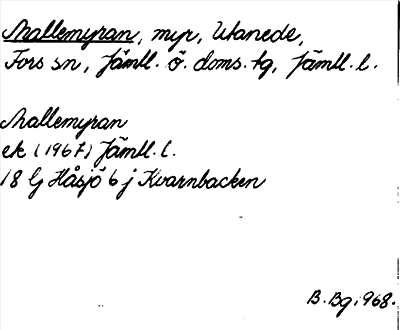 Mallemyran, myr, Utanede,
Fors sn, Jämtl. ö. doms. tg, Jämtl. l.
Mallemyran
ek (1967) Jämtl. l.
18 G Håsjö 6 j Kvarnbacken
B. Bg. 1968.